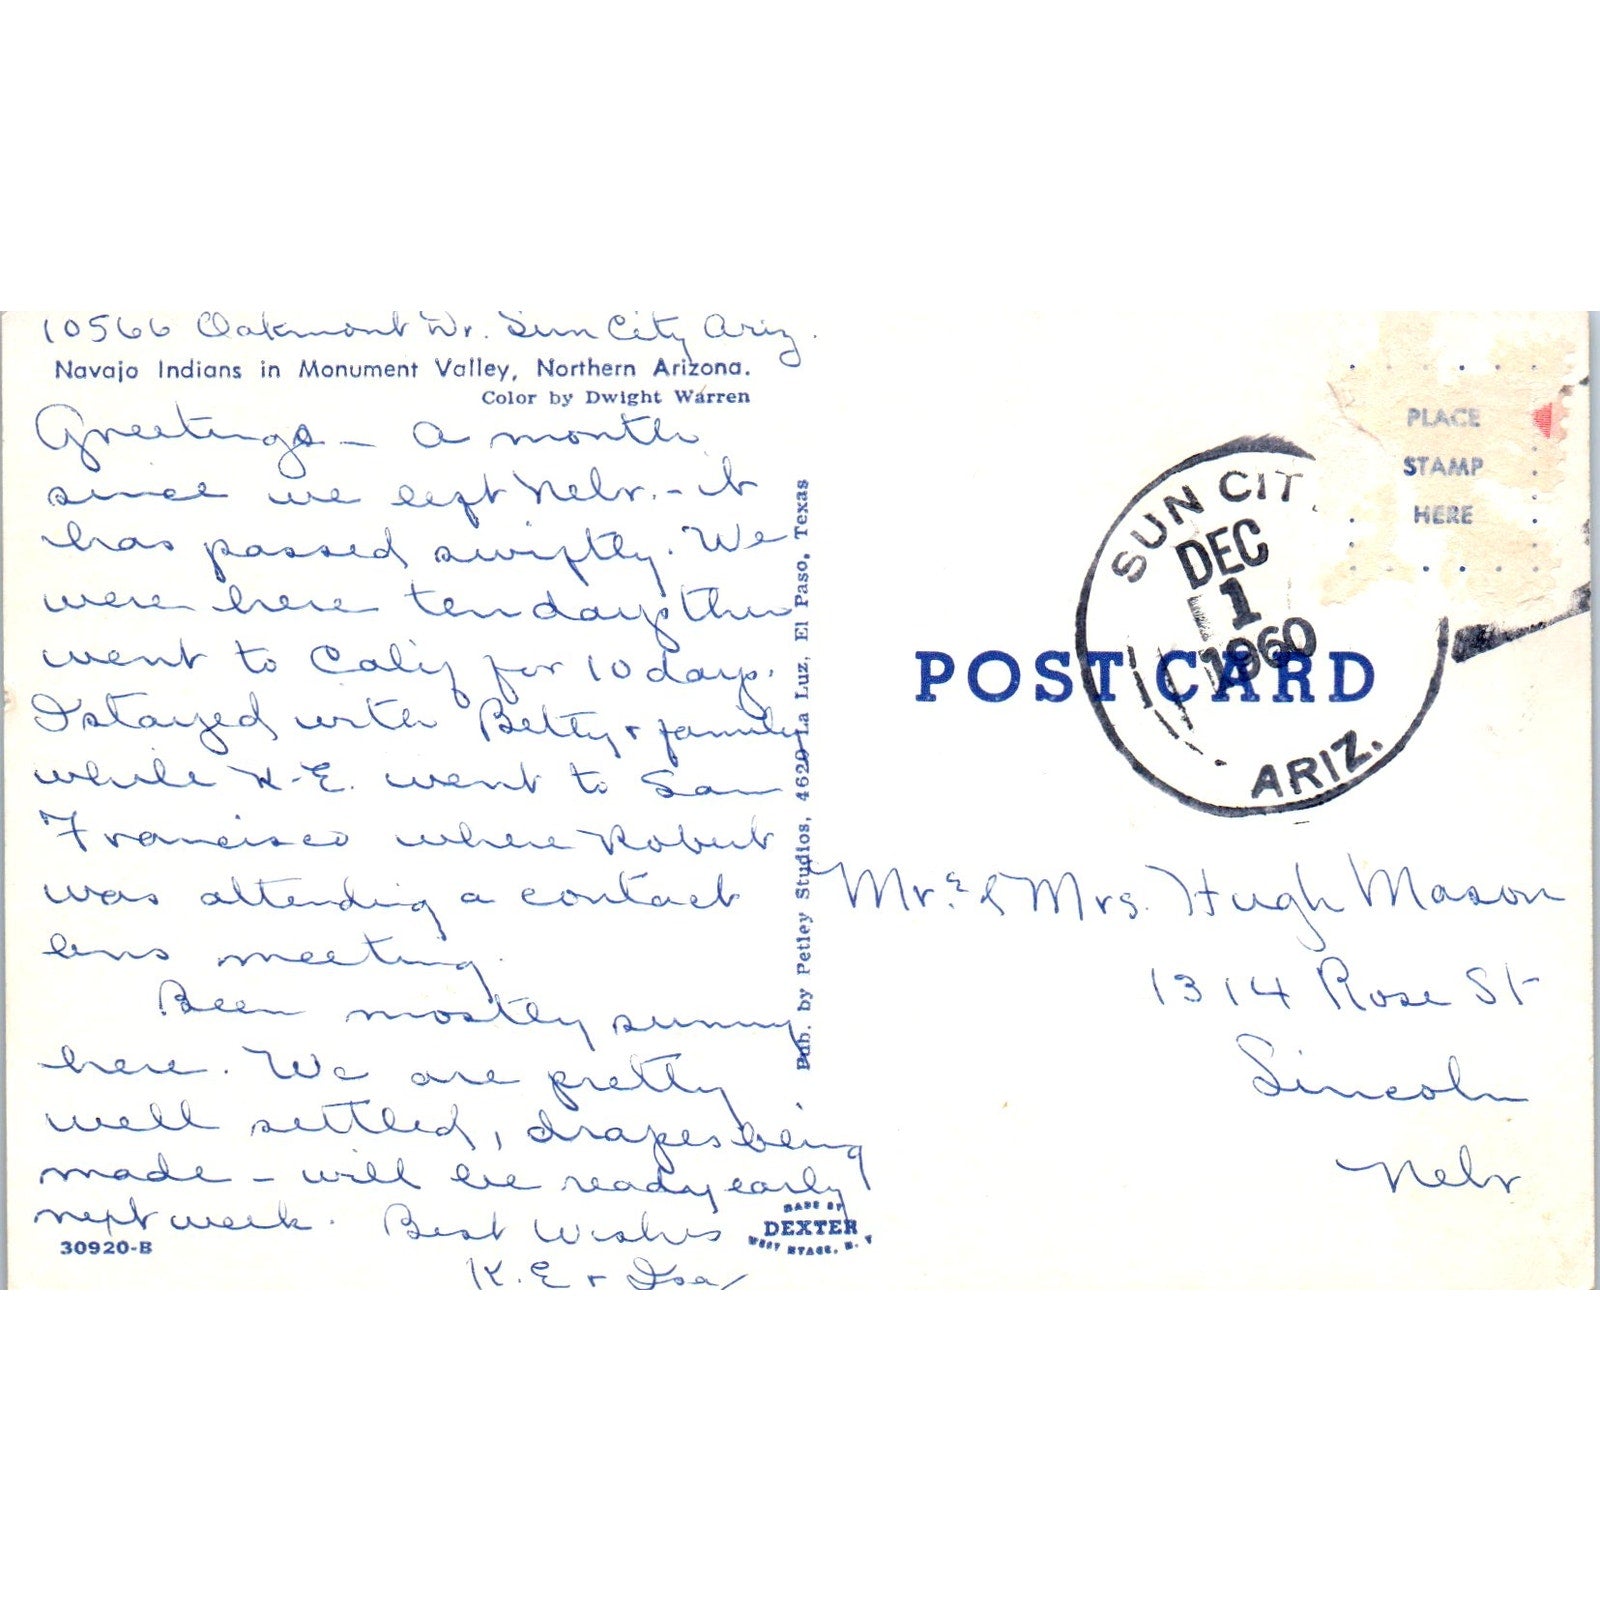 10566 Oakmont Dr. Sun City Ariz.
Navajo Indians in Monument Valley, Northern Arizona.
Color by Dwight Warren
Greetings - A month
since we left Nebr. - it
has passed swiftly. We
were here ten days then
went to Calif for 10 days.
I stayed with Betty + family
while K-E. went to San
Francisco where Robert
was attending a contact
lens meeting.
Been mostly sunny
here. We are pretty
well settled, drapes being
made - will be ready early
next week. Best Wishes
K.E + Isa
30920-B
MADE BY
DEXTER
WEST NYACK, N. Y.
Pub. by Petley Studios, 4620 La Luz, El Paso, Texas
PLACE
STAMP
HERE
SUN CIT
DEC
1
1960
ARIZ.
POST CARD
Mr. & Mrs. Hugh Mason
1314 Rose St
Lincoln
Nebr